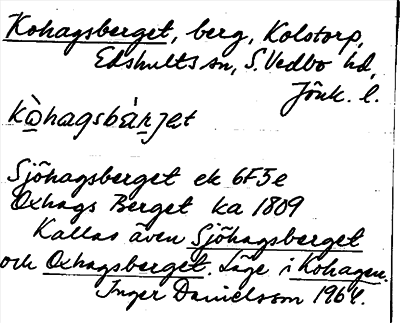 Kohagsberget, berg, Kolstorp,
Edshults sn, S. Vedbo hd,
Jönk. l.
kò̱hagsbàrjet
Sjöhagsberget ek 6F5e
Oxhags Berget ka 1809
Kallas även Sjöhagsberget
och Oxhagsberget. Läge i Kohagen.
Inger Danielsson 1964.